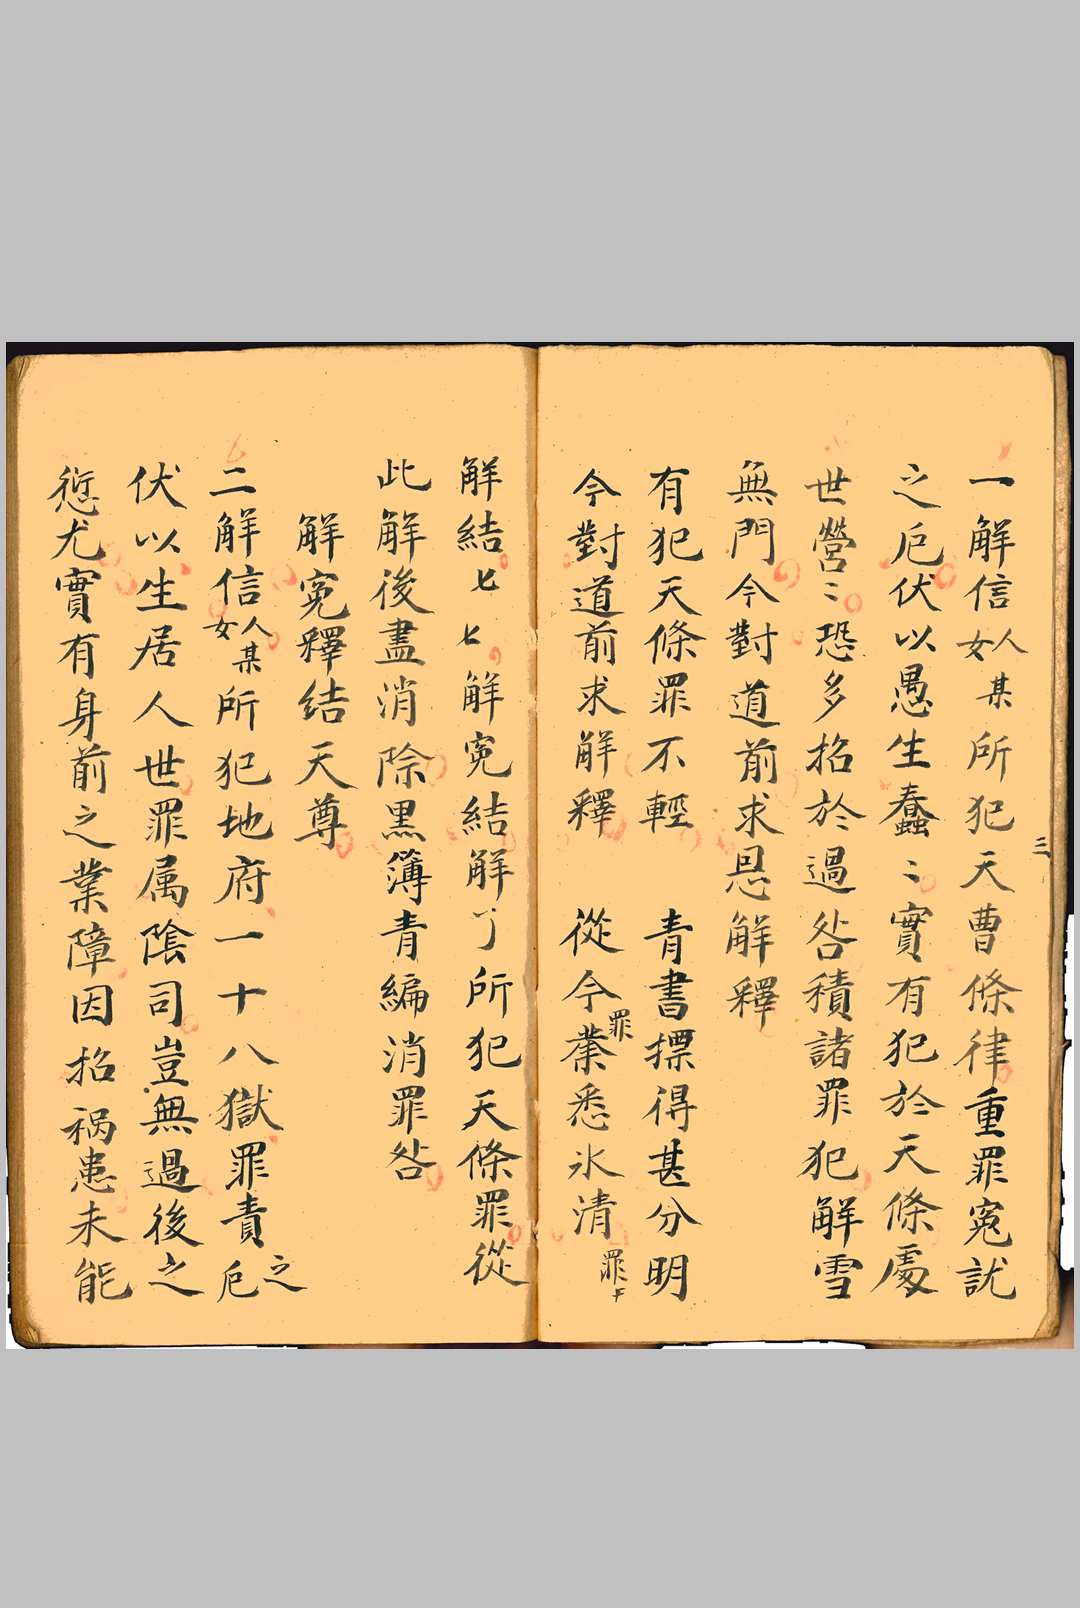 一解信人女某所犯天曹條律重罪冤訧
之厄伏以愚生蠢〻實有犯於天條處
世營〻恐多招於過咎積諸罪犯解雪
無門今對道前求恩解釋
有犯天條罪不輕 青書摽得甚分明
今對道前求解釋 從今罪業悉氷清 罪下
三
解結七七解冤結解了所犯天條罪從
此解後盡消除黒簿青編消罪咎
解冤釋結天尊
二解信人女某所犯地府一十八獄罪責之厄
伏以生居人世罪属陰司豈無過後之
愆尤實有身前之業障因招祸患未能